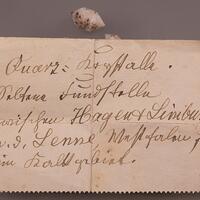 Quarz=Krystalle.
Seltene Fundstelle
zwischen Hagen & Limburg
a. d. Lenne, Westfalen
im Kalkgebiet.